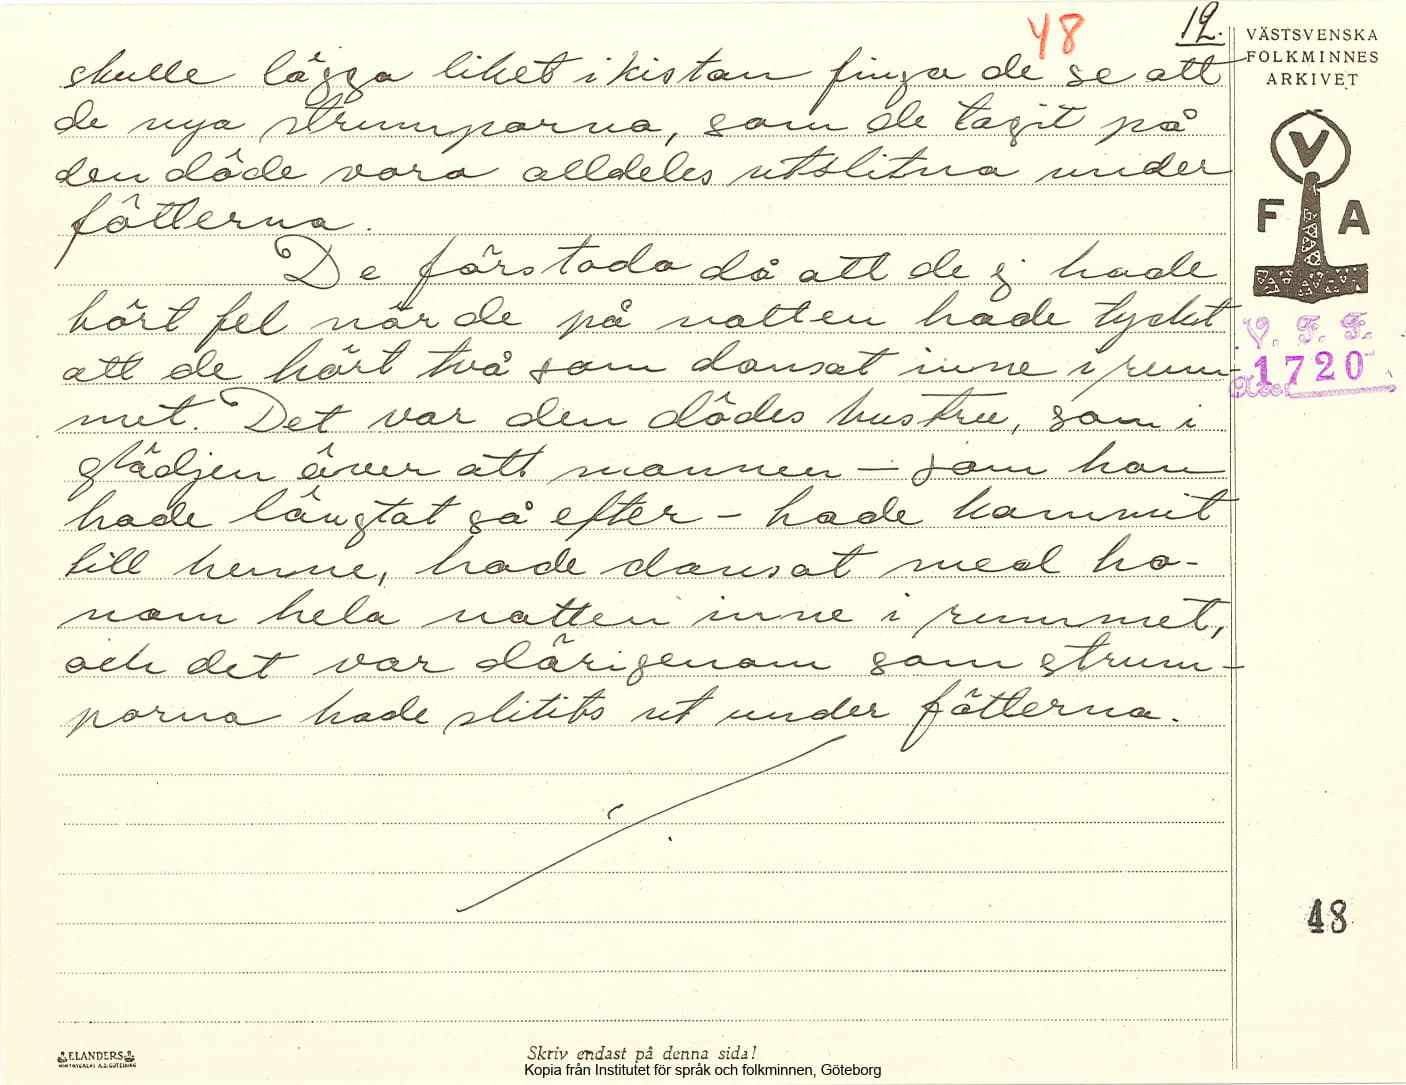 48
12.
VÄSTSVENSKA
FOLKMINNES
ARKIVET
skulle lägga liket i kistan fingo de se att
de nya strumporna, som de tagit på
den döde voro alldeles utslitna under
fötterna.
De förstodo då att de ej hade
hört fel när de på natten hade tyckt
att de hört två som dansat inne i rum-
met. Det var den dödes hustru, som i
glädjen över att mannen – som hon
hade längtat så efter – hade kommit
till henne, hade dansat med ho-
nom hela natten inne i rummet,
och det var därigenom som strum-
porna hade slitits ut under fötterna.
V
F A
V. F. F.
Acc. 1720
48
ELANDERS
Skriv endast på denna sida!
Kopia från Institutet för språk och folkminnen, Göteborg